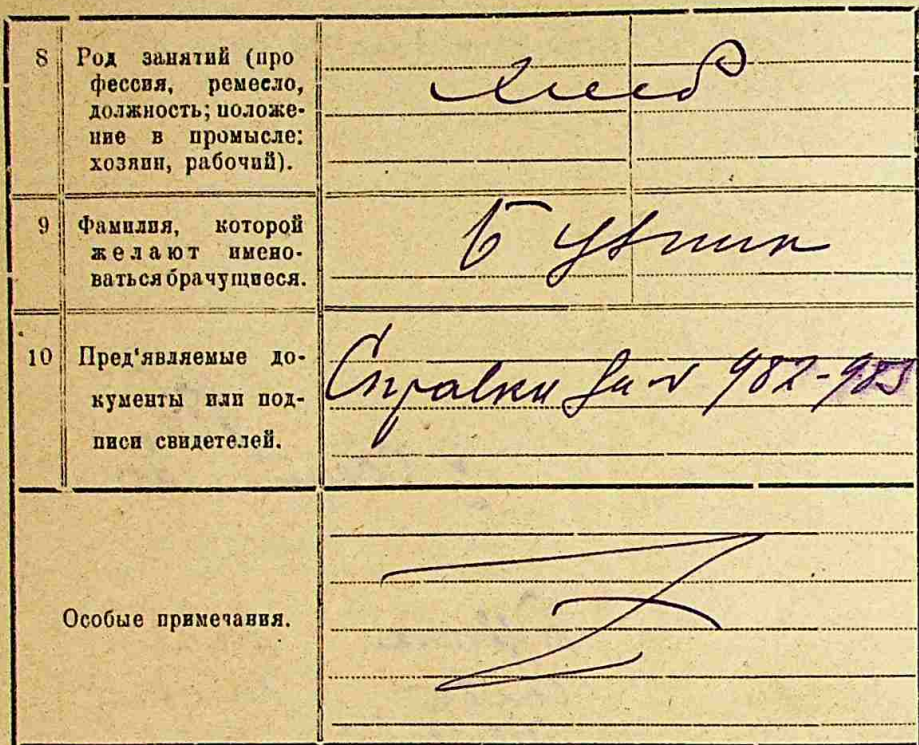 8 Род занятий (про
фессия, ремесло,
должность; положе-
ние в промысле:
хозяин, рабочий).
9 Фамилия, которой
желают имено-
ваться брачущиеся.
10 Пред'являемые до-
кументы или под-
писи свидетелей.
Справки за № 982-983
Особые примечания.